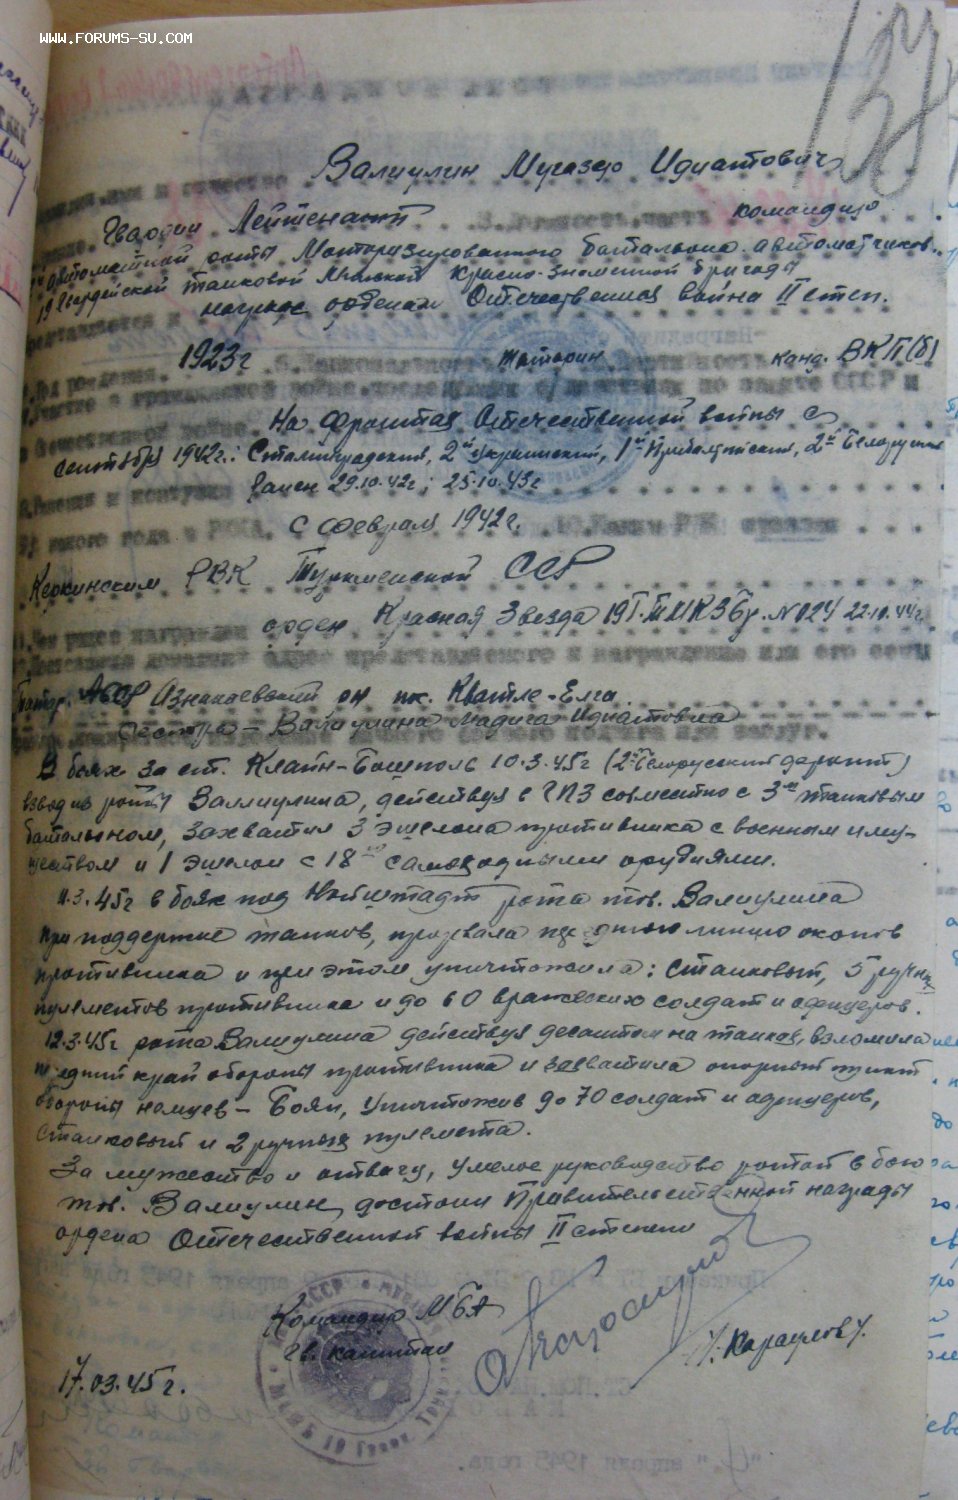 www.forums-su.com
137
НАГРАДНОЙ ЛИСТ
Валиулин Мугаздо Идиатович
имя и отчество
Гвардии Лейтенант 3. Должность, часть командир
автоматной роты Моторизированного батальона автоматчиков
19 Гвардейской танковой Минской Красно-знаменной бригады
награде орденом Отечественная война II степ.
1923г 5. Национальность татарин канд. ВКП(б)
год рождения.
Участие в гражданской войне, последующих действиях по защите СССР и
отечественной войне. На фронтах Отечественной войны с
сентября 1942г.: Сталинградский, 2й Украинский, 1й Прибалтийский, 2й Белорусский
ранения и контузии ранен 29.10.42г; 25.10.43г
с какого года в РККА. с февраля 1942г. 10. Каким РВК призван
Керкинским РВК Туркменской ССР
Чем ранее награжден орден Красная Звезда 19Г.ТМКЗБр. №024 22.10.44г.
домашний адрес представляемого к награждению или его семьи
Татар. АССР Азнакаевский он
сестра – Валиулина Идиатовна
боевого подвига или заслуг.
В боях за ст. Клайн-Бошполь 10.3.45г (2й Белорусский фронт)
взвод из роты Валлиулина, действуя в ГПЗ совместно с 3м танковым
батальоном, захватил 3 эшелона противника с военным иму-
ществом и 1 эшелон с 18ю самоходными орудиями.
11.3.45г в боях под Нойштадт рота тов. Валиулина
при поддержке танков, прорвала линию окопов
противника и при этом уничтожила: станковый, 5 ручных
пулеметов противника и до 60 вражеских солдат и офицеров.
12.3.45г рота Валиулина действуя десантом на танках, взломила
передний край обороны противника и захватила опорный пункт
обороны немцев – Боян, уничтожив до 70 солдат и офицеров,
станковый и 2 ручных пулемета.
За мужество и отвагу, умелое руководство ротой в бою
тов. Валиулин, достоин Правительственной награды
ордена Отечественной войны II степени
Командир МБА
гв. капитан
/Караулов/.
17.03.45г.